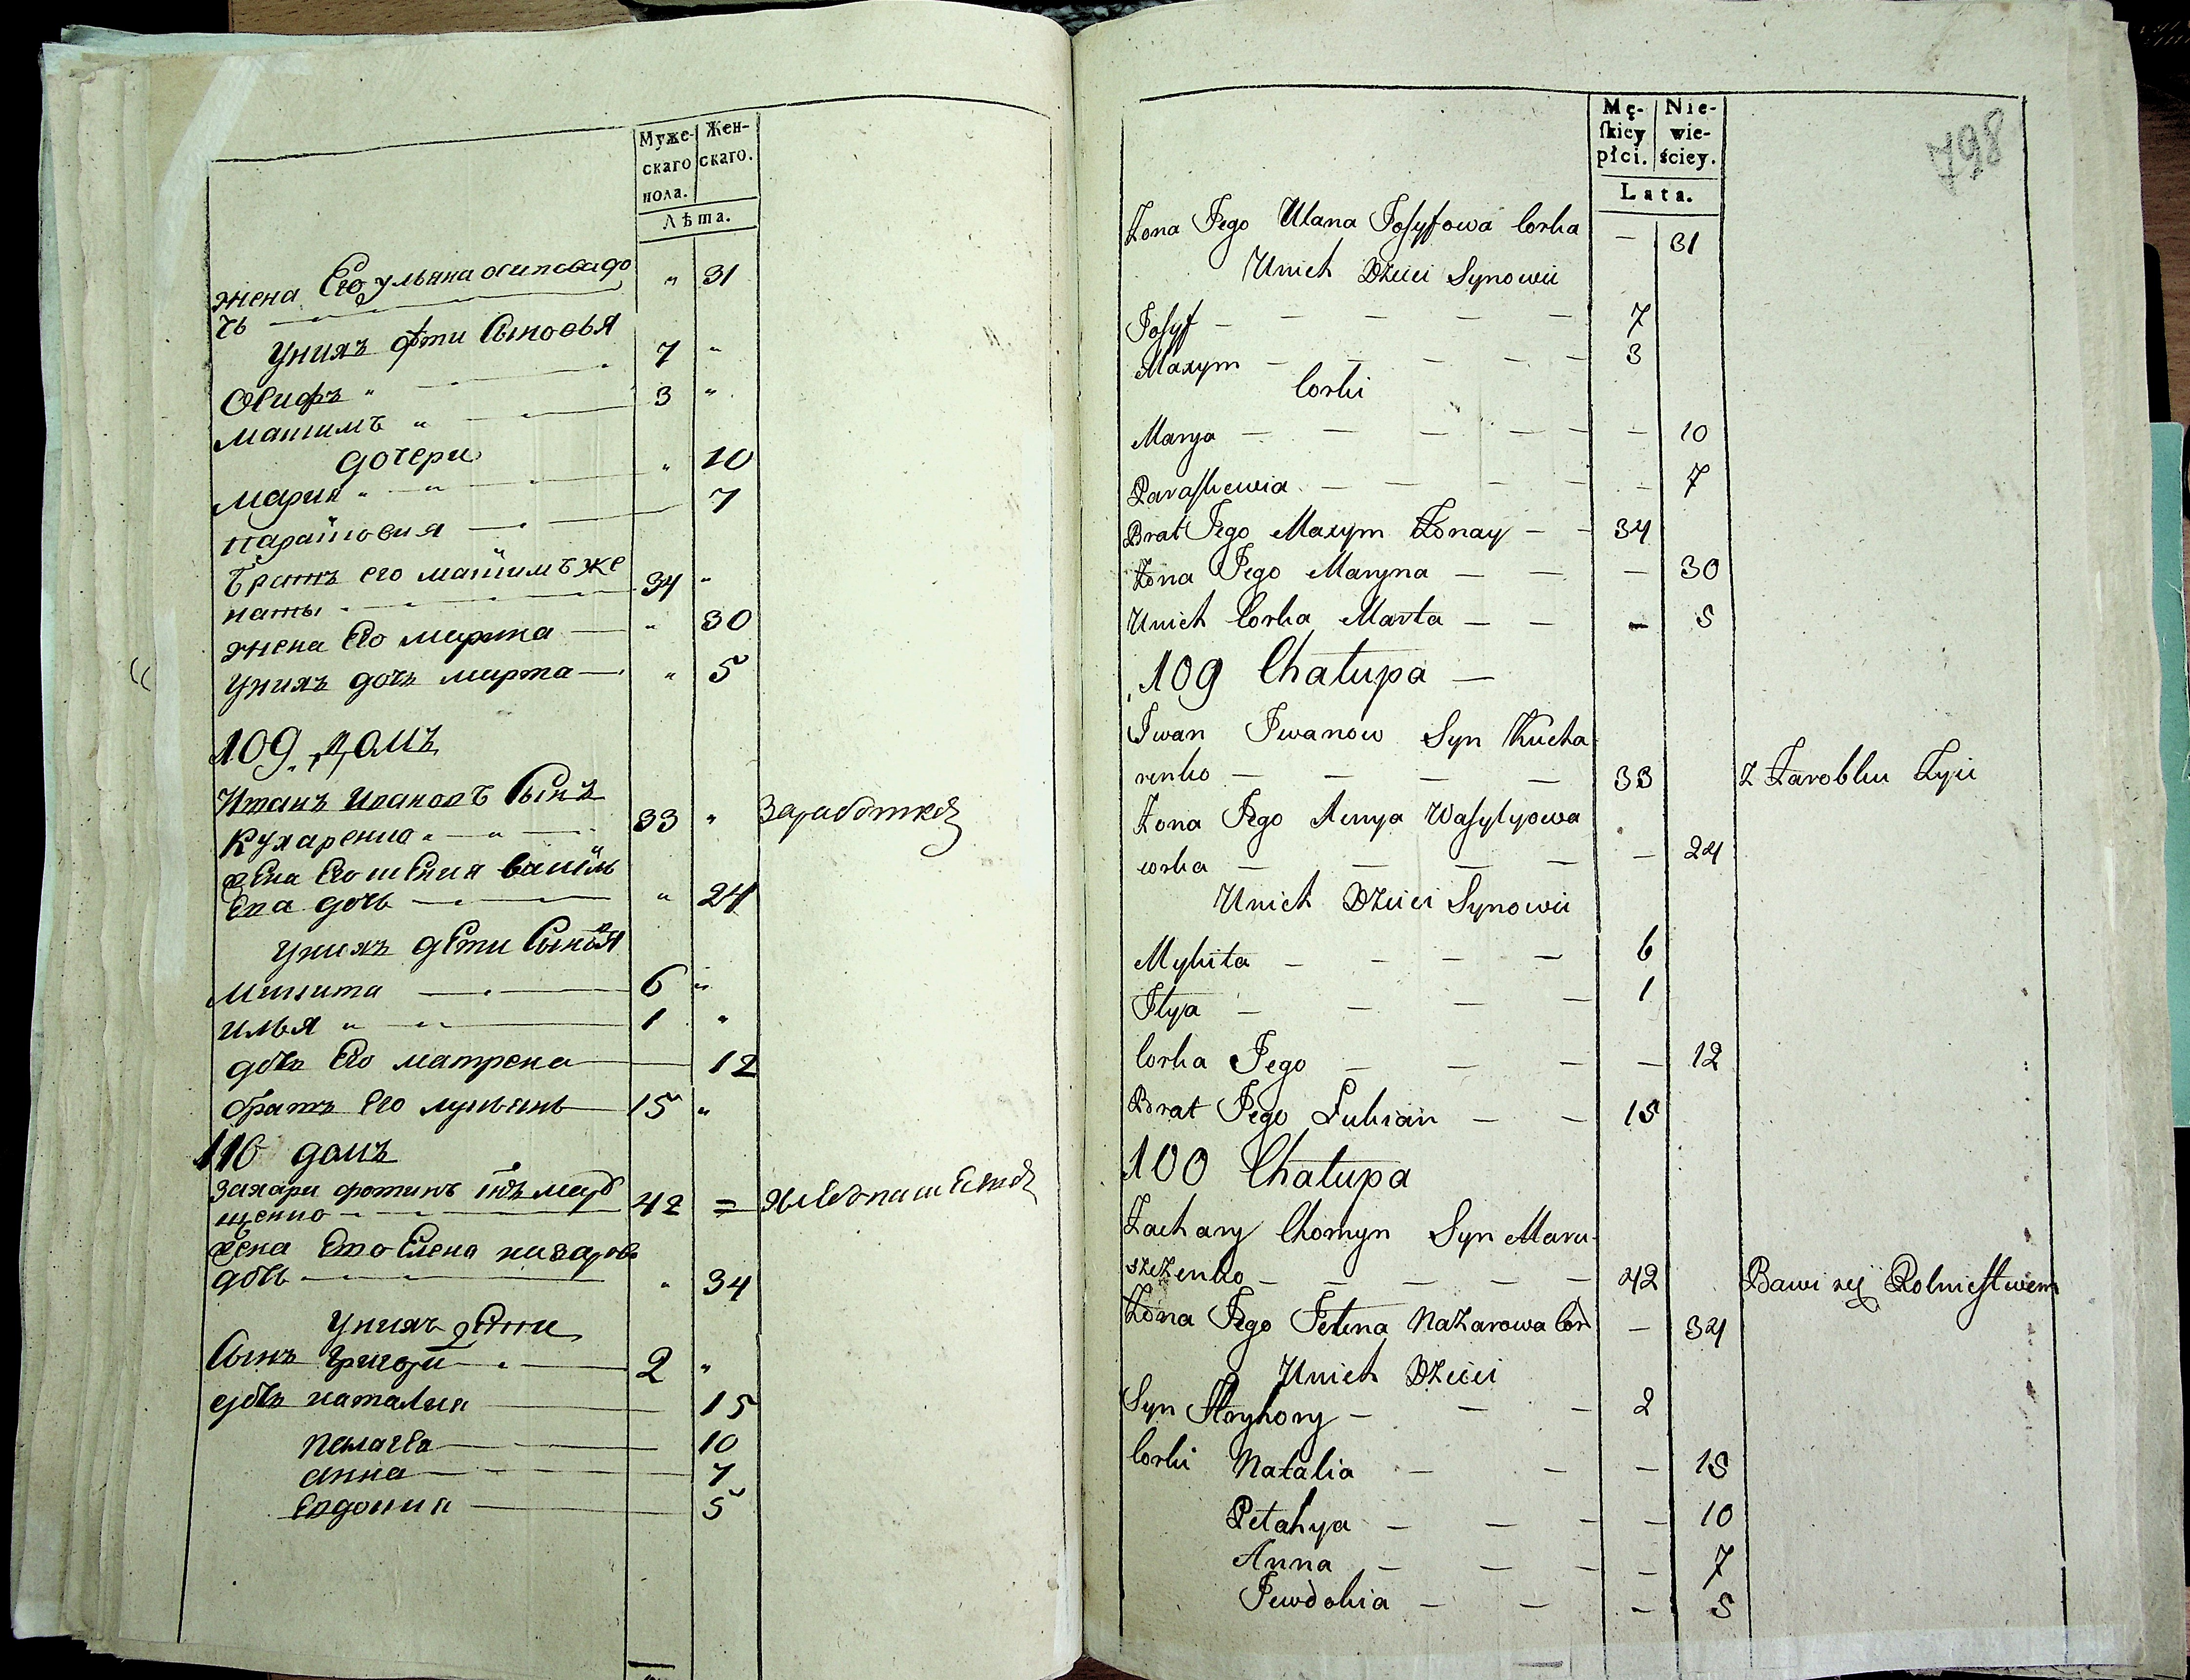 Муже-
скаго
пола.
Жен-
скаго.
Лѣта.
жена Его ульяна осиповадо
чь " 31
Унихъ дѣти Сыновья
Осифъ " 7 "
Максимъ " 3 "
дочери
Мария " " 10
парасковия 7
Братъ его максимъ же
наты 34 "
жена Его марина " 30
Унихъ дочь марта " 5
109. домъ
Иванъ Ивановъ Сынъ
Кухаренко " " 33 " Заработкой
жена Его Ксения василь
Ева дочь " 24
Унихъ дети Сыновя
Микита 6 "
илья " " 1 "
дочь Его матрена 12
братъ Его лукьянъ 15 "
110 домъ
Захари фоминъ Снъ мару
щенко 42 = хлебопашествой
жена Его Елена назарова
дочь " 34
Унихъ дети
Сынъ григори 2 "
дочь наталия 15
пелагея 10
анна 7
Евдокия 5
Mę-
ſkiey
płci.
Nie-
wie-
ściey.
Lata.
798
Żona Jego Ulana Josyfowa Corka — 31
Unich Dzieci Synowie
Josyf — — — — — 7
Maxym — — — — — 3
Corki
Marya — — — — — — 10
Paraskewia — — — — — 7
Brat Jego Maxym Żonay — — 34
Żona Jego Maryna — — — 30
Unich Corka Marta — — — 5
109 Chałupa —
Jwan Jwanow Syn Kucha
renko — — — — 33 Z Zarobku Żyie
Żona Jego Xenya Wasylyowa
corka — — — — — 24
Unich Dzieci Synowie
Mykita — — — — 6
Jlya — — — — 1
Corka Jego — — — — 12
Brat Jego Lukian — — 15
100 Chałupa
Zachary Chomyn Syn Maru-
szczenko — — — — — 42 Bawi się Rolnictwem
Żona Jego Jelena Nazarowa Cor — 34
Unich Dzieci
Syn Hryhory — — — 2
Corki Natalia — — — 15
Pelahya — — — — 10
Anna — — — — 7
Jewdokia — — — 5